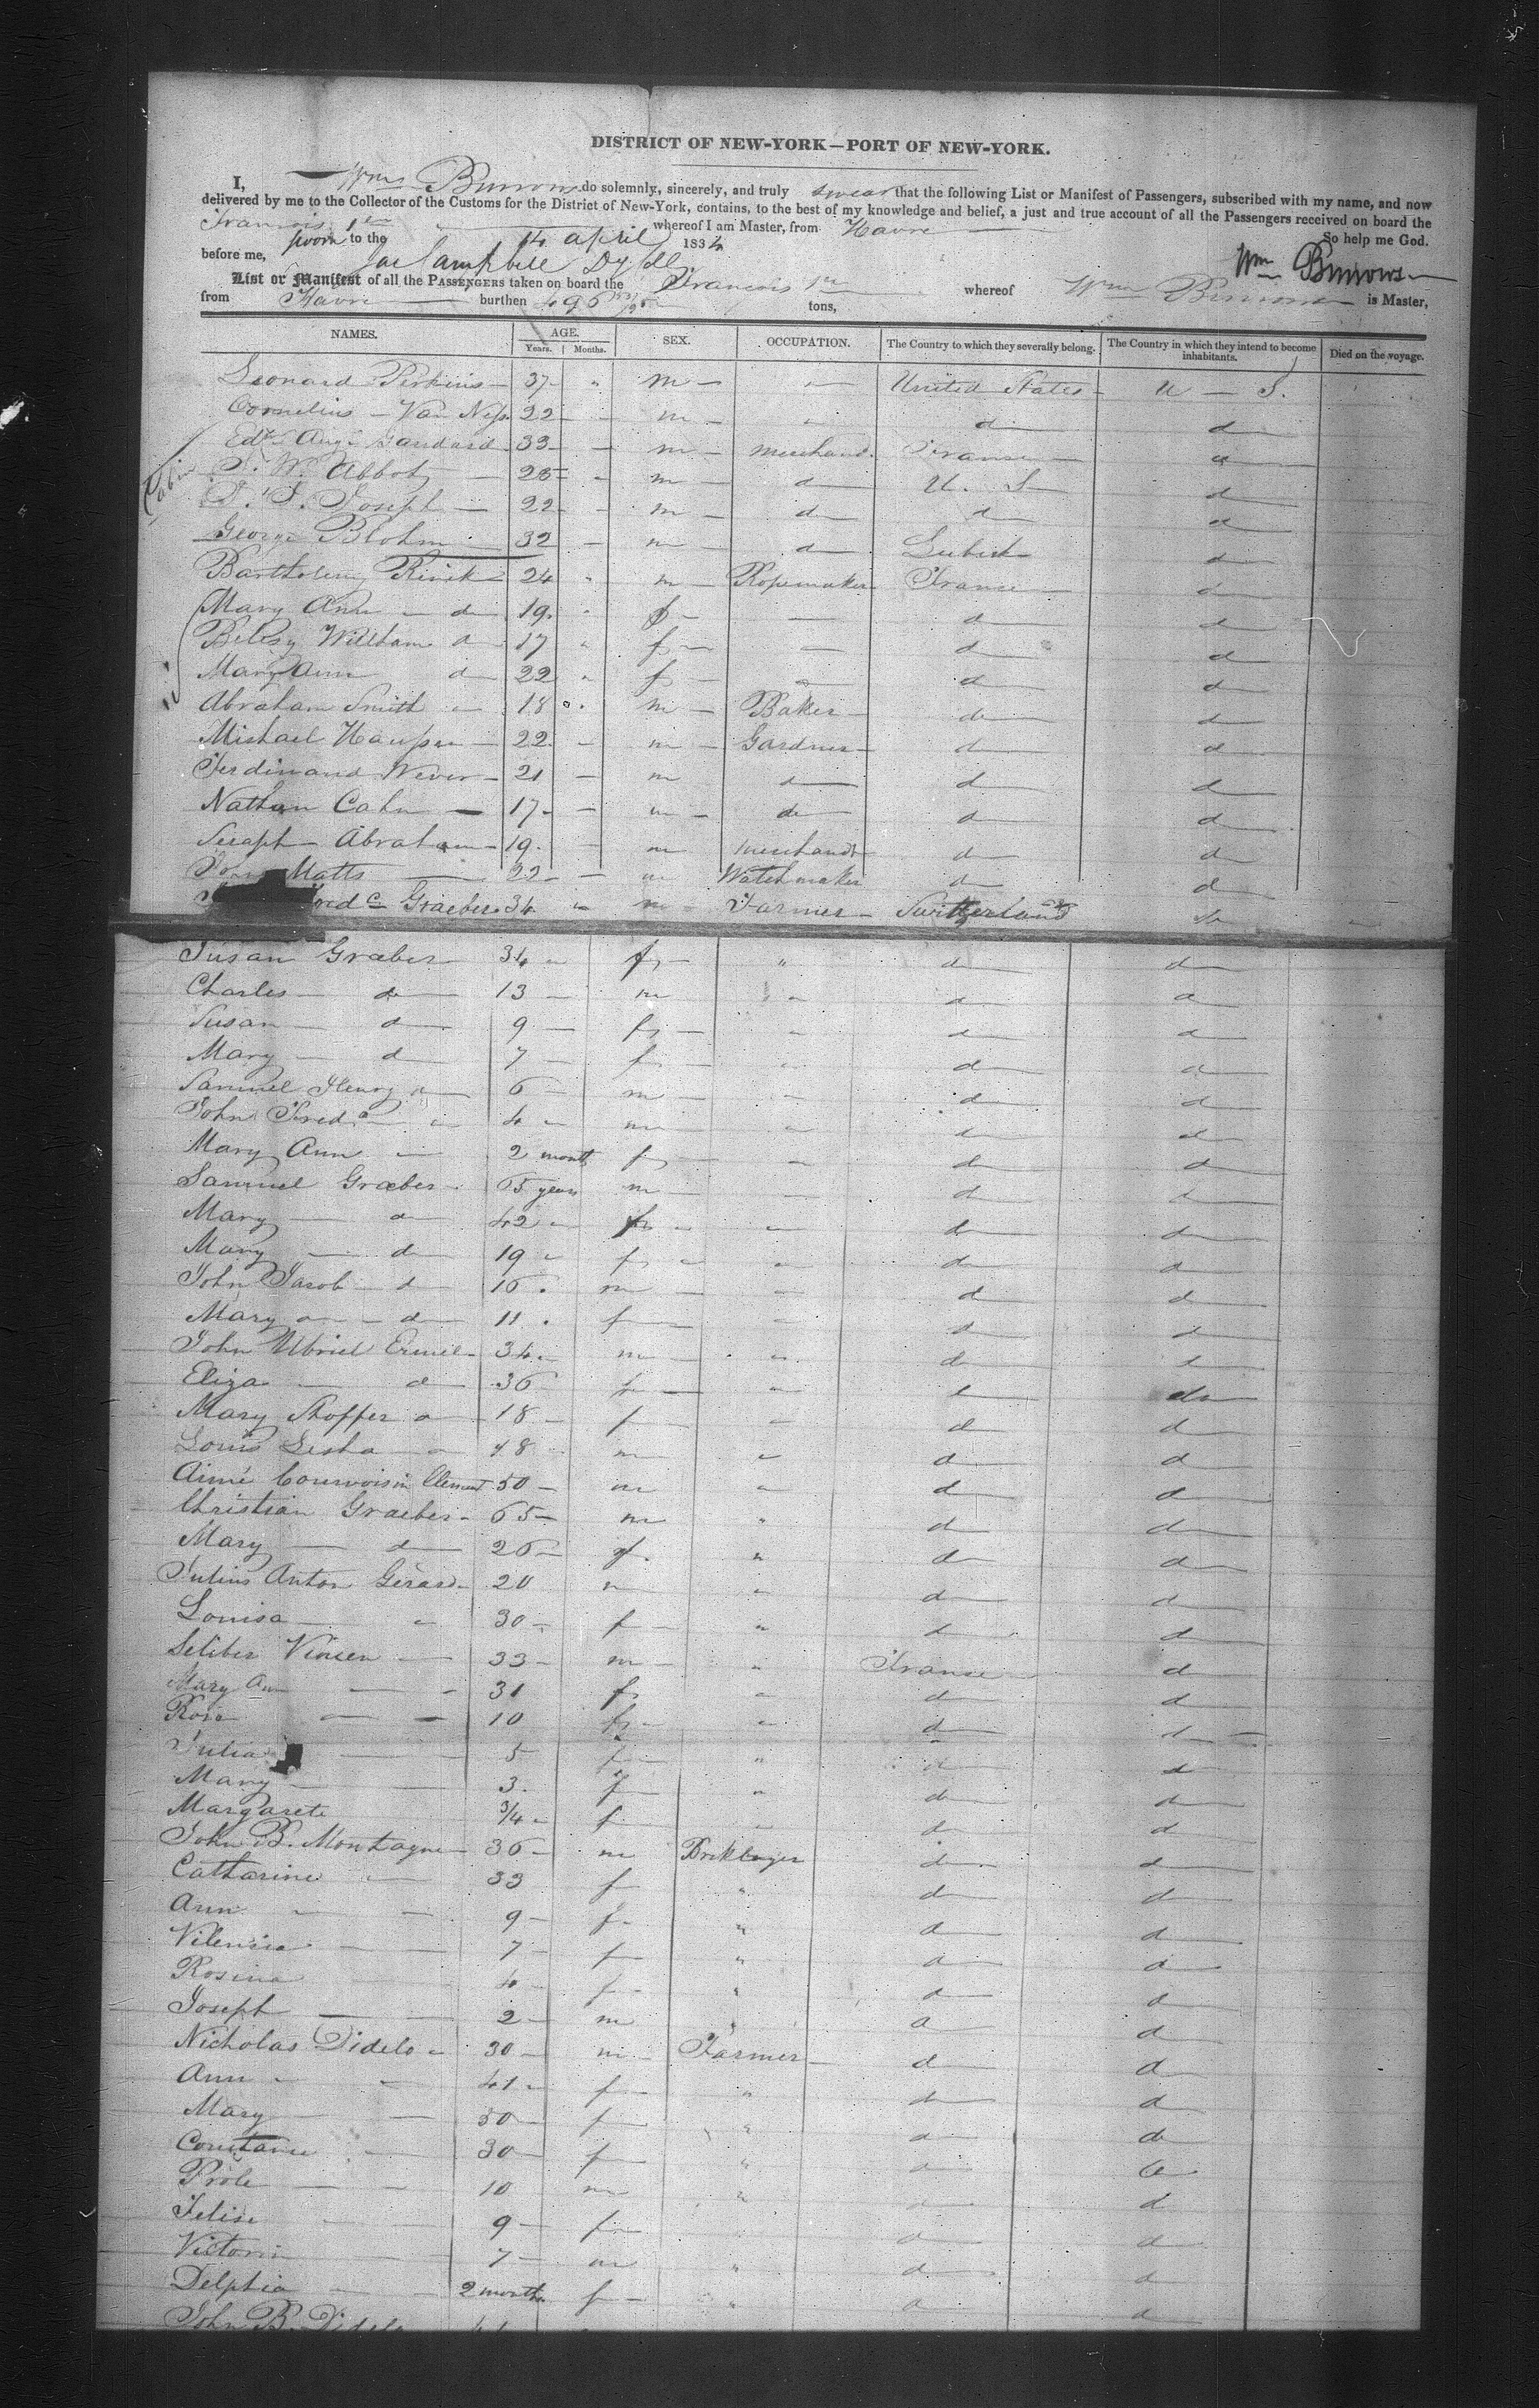 DISTRICT OF NEW-YORK—PORT OF NEW-YORK.
I, Wm Burrows do solemnly, sincerely, and truly swear that the following List or Manifest of Passengers, subscribed with my name, and now
delivered by me to the Collector of the Customs for the District of New-York, contains, to the best of my knowledge and belief, a just and true account of all the Passengers received on board the
Francois 1er whereof I am Master, from Havre
sworn to the 14 april 1834 So help me God.
before me, Campbell Wm Burrows
List or Manifest of all the PASSENGERS taken on board the Francois 1er whereof Wm Burrows is Master,
from Havre burthen 496 tons,
NAMES. AGE. SEX. OCCUPATION. The Country to which they severally belong. The Country in which they intend to become inhabitants. Died on the voyage.
Years. Months.
Cabin
Leonard Perkins 37 " m " United States U - S.
Cornelius Van Ness 22 - m " d d
Edd Augt 33 - m merchand. France d
S. W. Abbot 25 - m d U. S d
D. S. Joseph 22 - m d d d
George Blohm 32 - m d Lubick d
Bartholemy Rinck 24 " m Ropemaker France d
Mary Ann d 19 " f — d d
Betesy William d 17 " f — d d
Mary Ann d 22 " f " d d
Abraham Smith 18 m Baker do d
Michael 22 - m Gardner d d
Ferdinand Wever 21 - m d d d
Nathan Cahn 17 - m do d d
Abraham 19. - m merchandt d d
Matts 22 - m Watchmaker d d
Fredc Graeber 34 " m Farmer Switzerland do
Susan Graeber 34 f " d d
Charles do 13 m " d d
Susan d 9 f " d d
Mary d 7 f " d d
Samuel Henry 6 m " d d
John Fredc 4 m " d d
Mary Ann 2 month f " d d
Samuel Graeber 65 years m " d d
Mary d 42 f " d d
Mary d 19 f " d d
John Jacob d 16 m " d d
Mary d 11 f " d d
John Ubriel 34 m " d d
Eliza d 36 f " d do
Mary Stoffer 18 f " d d
Louis 48 m " d d
Aimé Courvoisin Clement 50 m " d d
Christian Graeber 65 m " d d
Mary d 26 f. " d d
Julius Anton Gerard 20 m " d d
Louisa " 30 f " d d
Vinsen 33 m " France d
Mary Ann 31 f " d d
Rosa 10 f " d d
Julia 5 f " d d
Mary 3. f " d d
Margarete 3/4 f " d d
John B. Montagne 36 m Bricklayer d d
Catharine 33 f " d d
Ann 9 f " d d
7 f " d d
Rosina 4 f " d d
Joseph 2 m " d d
Nicholas Didelo 30 m Farmer d d
Ann 41 f " d d
Mary 30 f " d do
Constance 30 f " d d
10 m " d d
Felise 9 f d d
Victorin 7 m " d d
Delphia 2 months f " d d
John B. Didelo 41